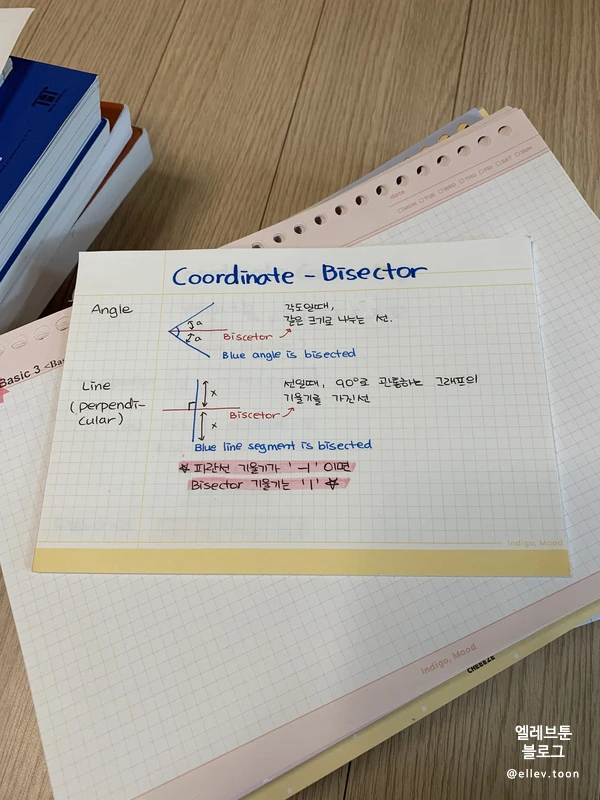 Coordinate - Bisector
Angle
a
a
Biscetor
각도일때,
같은 크기로 나누는 선.
Blue angle is bisected
Line
(perpendi-
cular)
x
x
Biscetor
선일때, 90°로 관통하는 그래프의
기울기를 가진선
Blue line segment is bisected
☆ 파란선 기울기가 '-1' 이면
Bisector 기울기는 '1' ☆
Indigo, Mood
Basic 3 <Bas
Indigo, Mood
CHEEEZE
date
엘레브툰
블로그
@ellev.toon